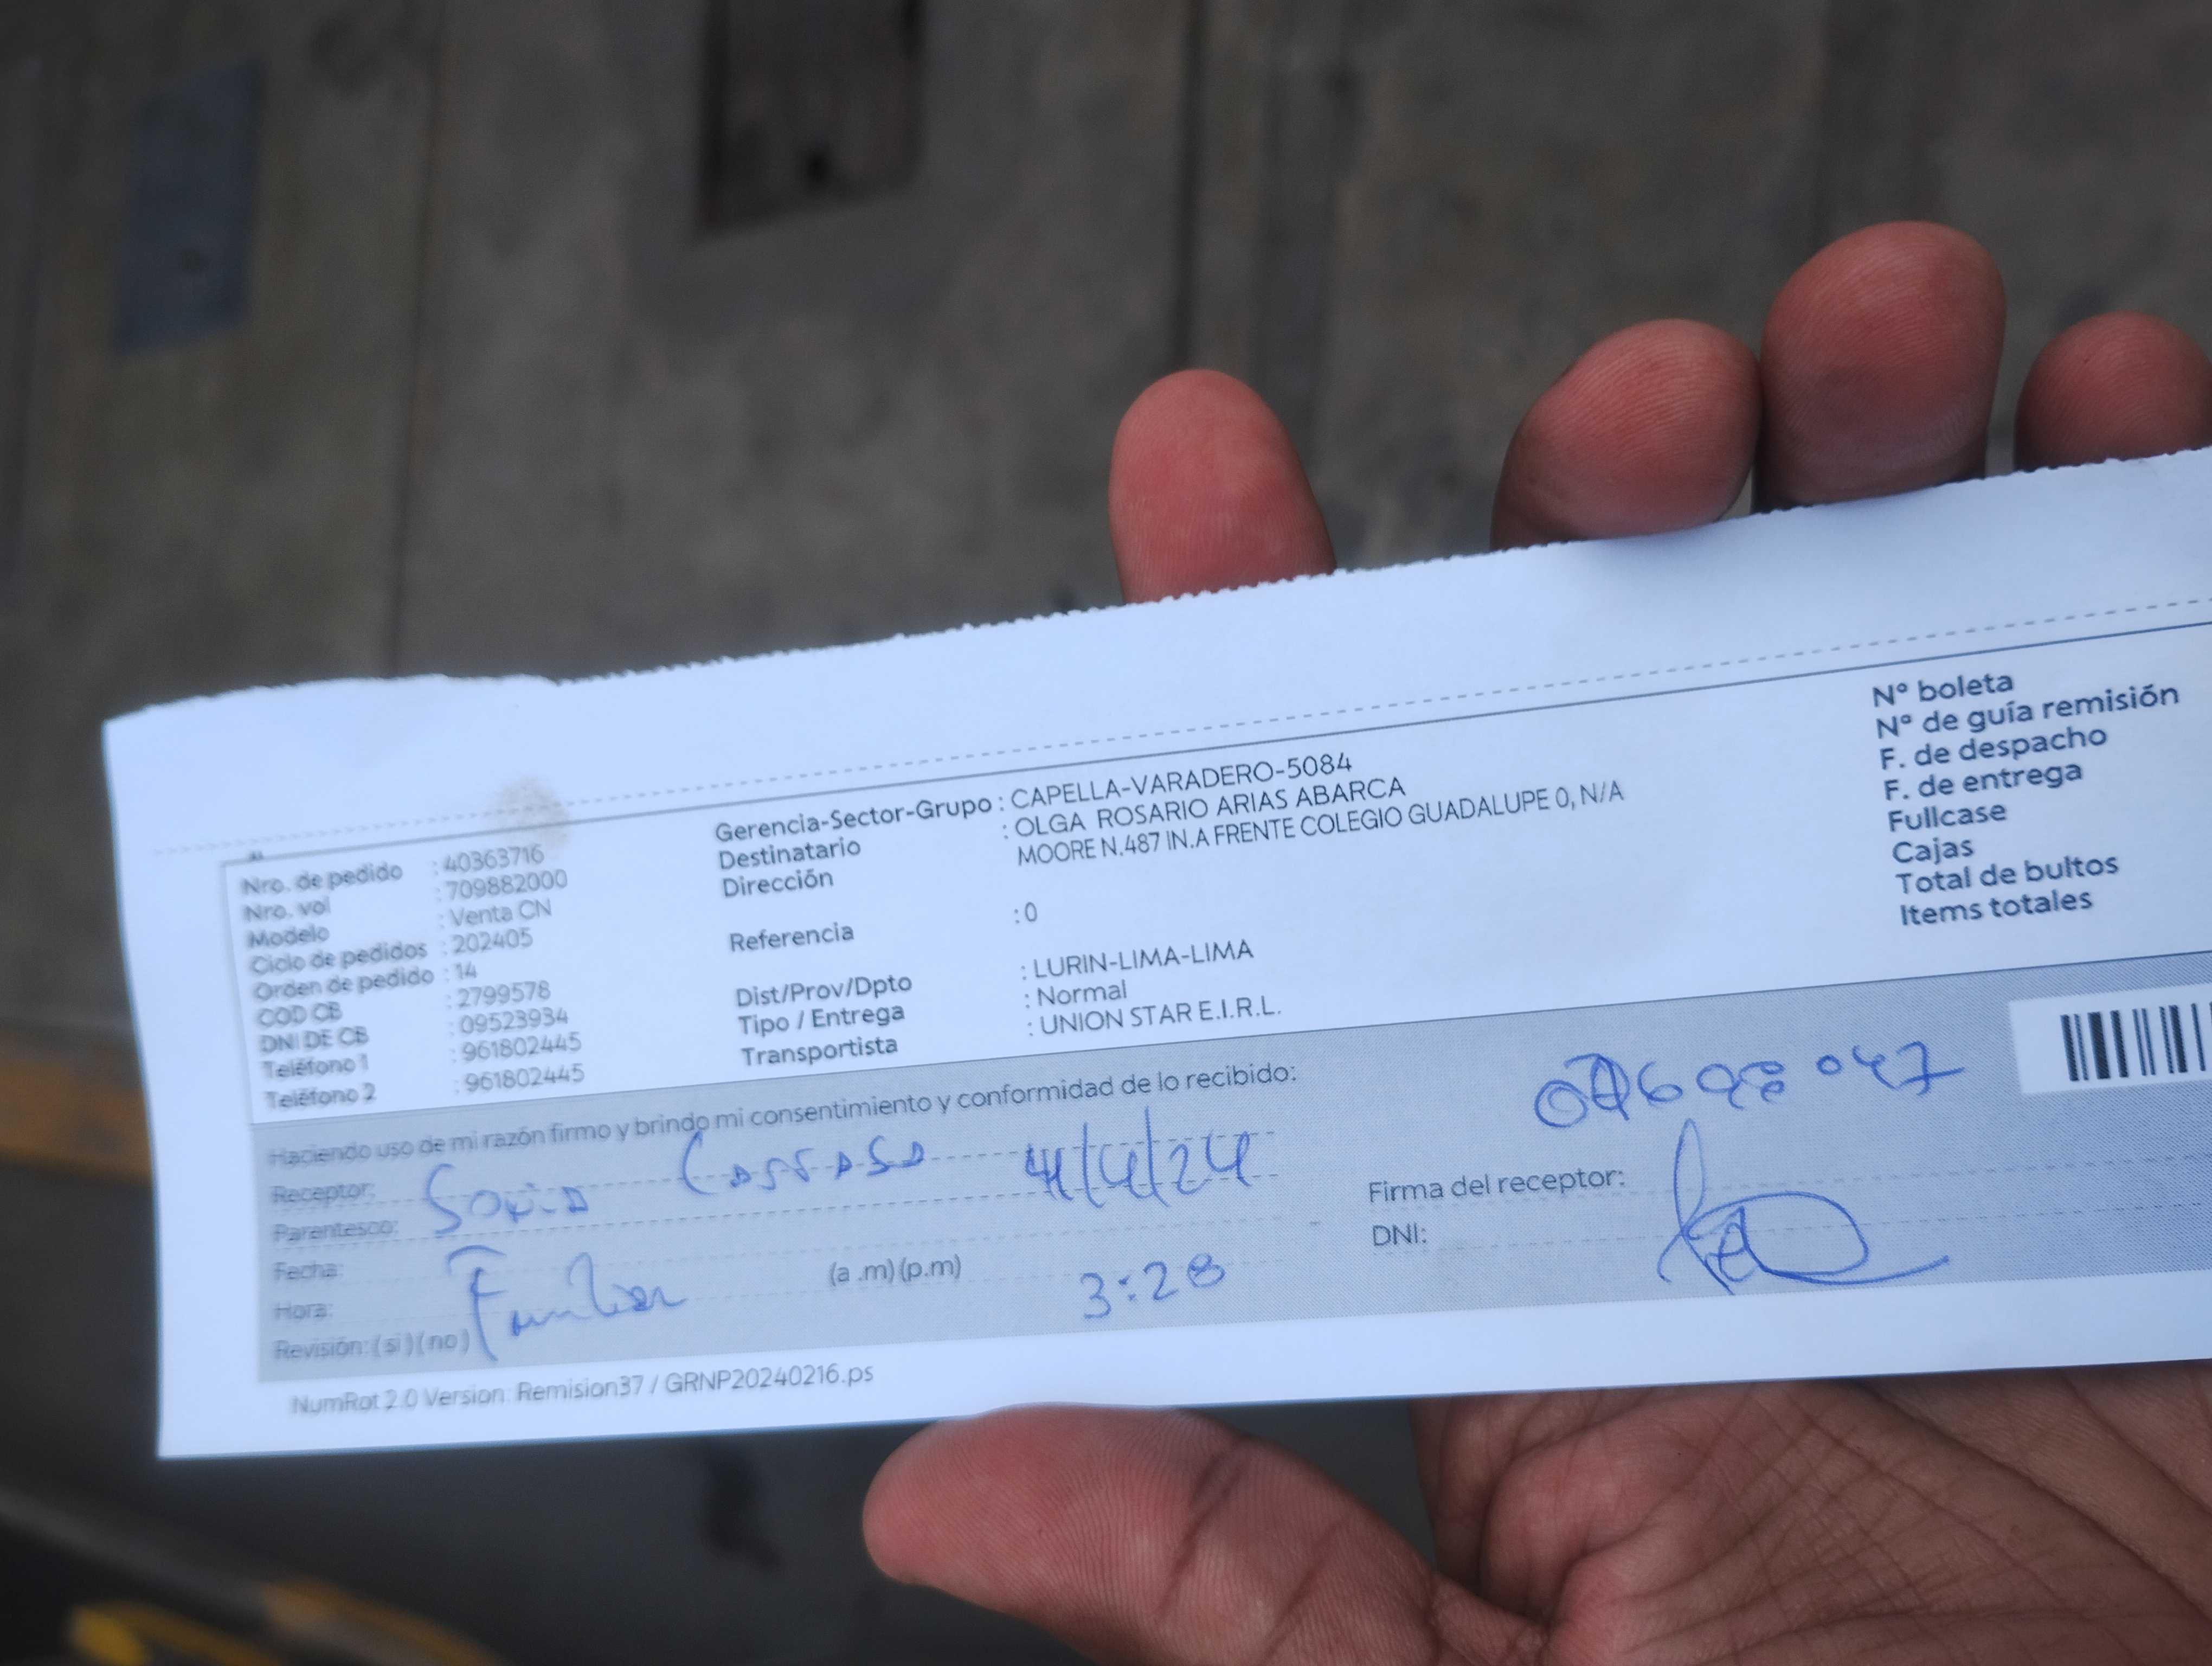 Nro. de pedido : 40363716
Nro. vol : 709882000
Modelo : Venta CN
Ciclo de pedidos : 202405
Orden de pedido : 14
COD CB : 2799578
DNI DE CB : 09523934
Teléfono 1 : 961802445
Teléfono 2 : 961802445
Gerencia-Sector-Grupo : CAPELLA-VARADERO-5084
Destinatario : OLGA ROSARIO ARIAS ABARCA
Dirección MOORE N.487 IN.A FRENTE COLEGIO GUADALUPE 0, N/A
Referencia : 0
Dist/Prov/Dpto : LURIN-LIMA-LIMA
Tipo / Entrega : Normal
Transportista : UNION STAR E.I.R.L.
N° boleta
N° de guía remisión
F. de despacho
F. de entrega
Fullcase
Cajas
Total de bultos
Items totales
Haciendo uso de mi razón firmo y brindo mi consentimiento y conformidad de lo recibido:
Receptor:
Parentesco: 4/4/24
Fecha:
Hora: Familiar (a .m) (p.m) 3:28
Revisión: (si) (no)
Firma del receptor:
DNI:
NumRot 2.0 Version: Remision37 / GRNP20240216.ps